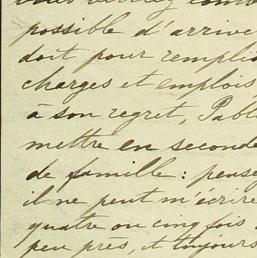 vous verrez comb
possible d'arrive
doit pour remplir
charges et emplois
à son regret, Pabl
mettre en seconde
de famille : pense
il ne peut m'écrire
quatre ou cinq fois
peu près, et toujours